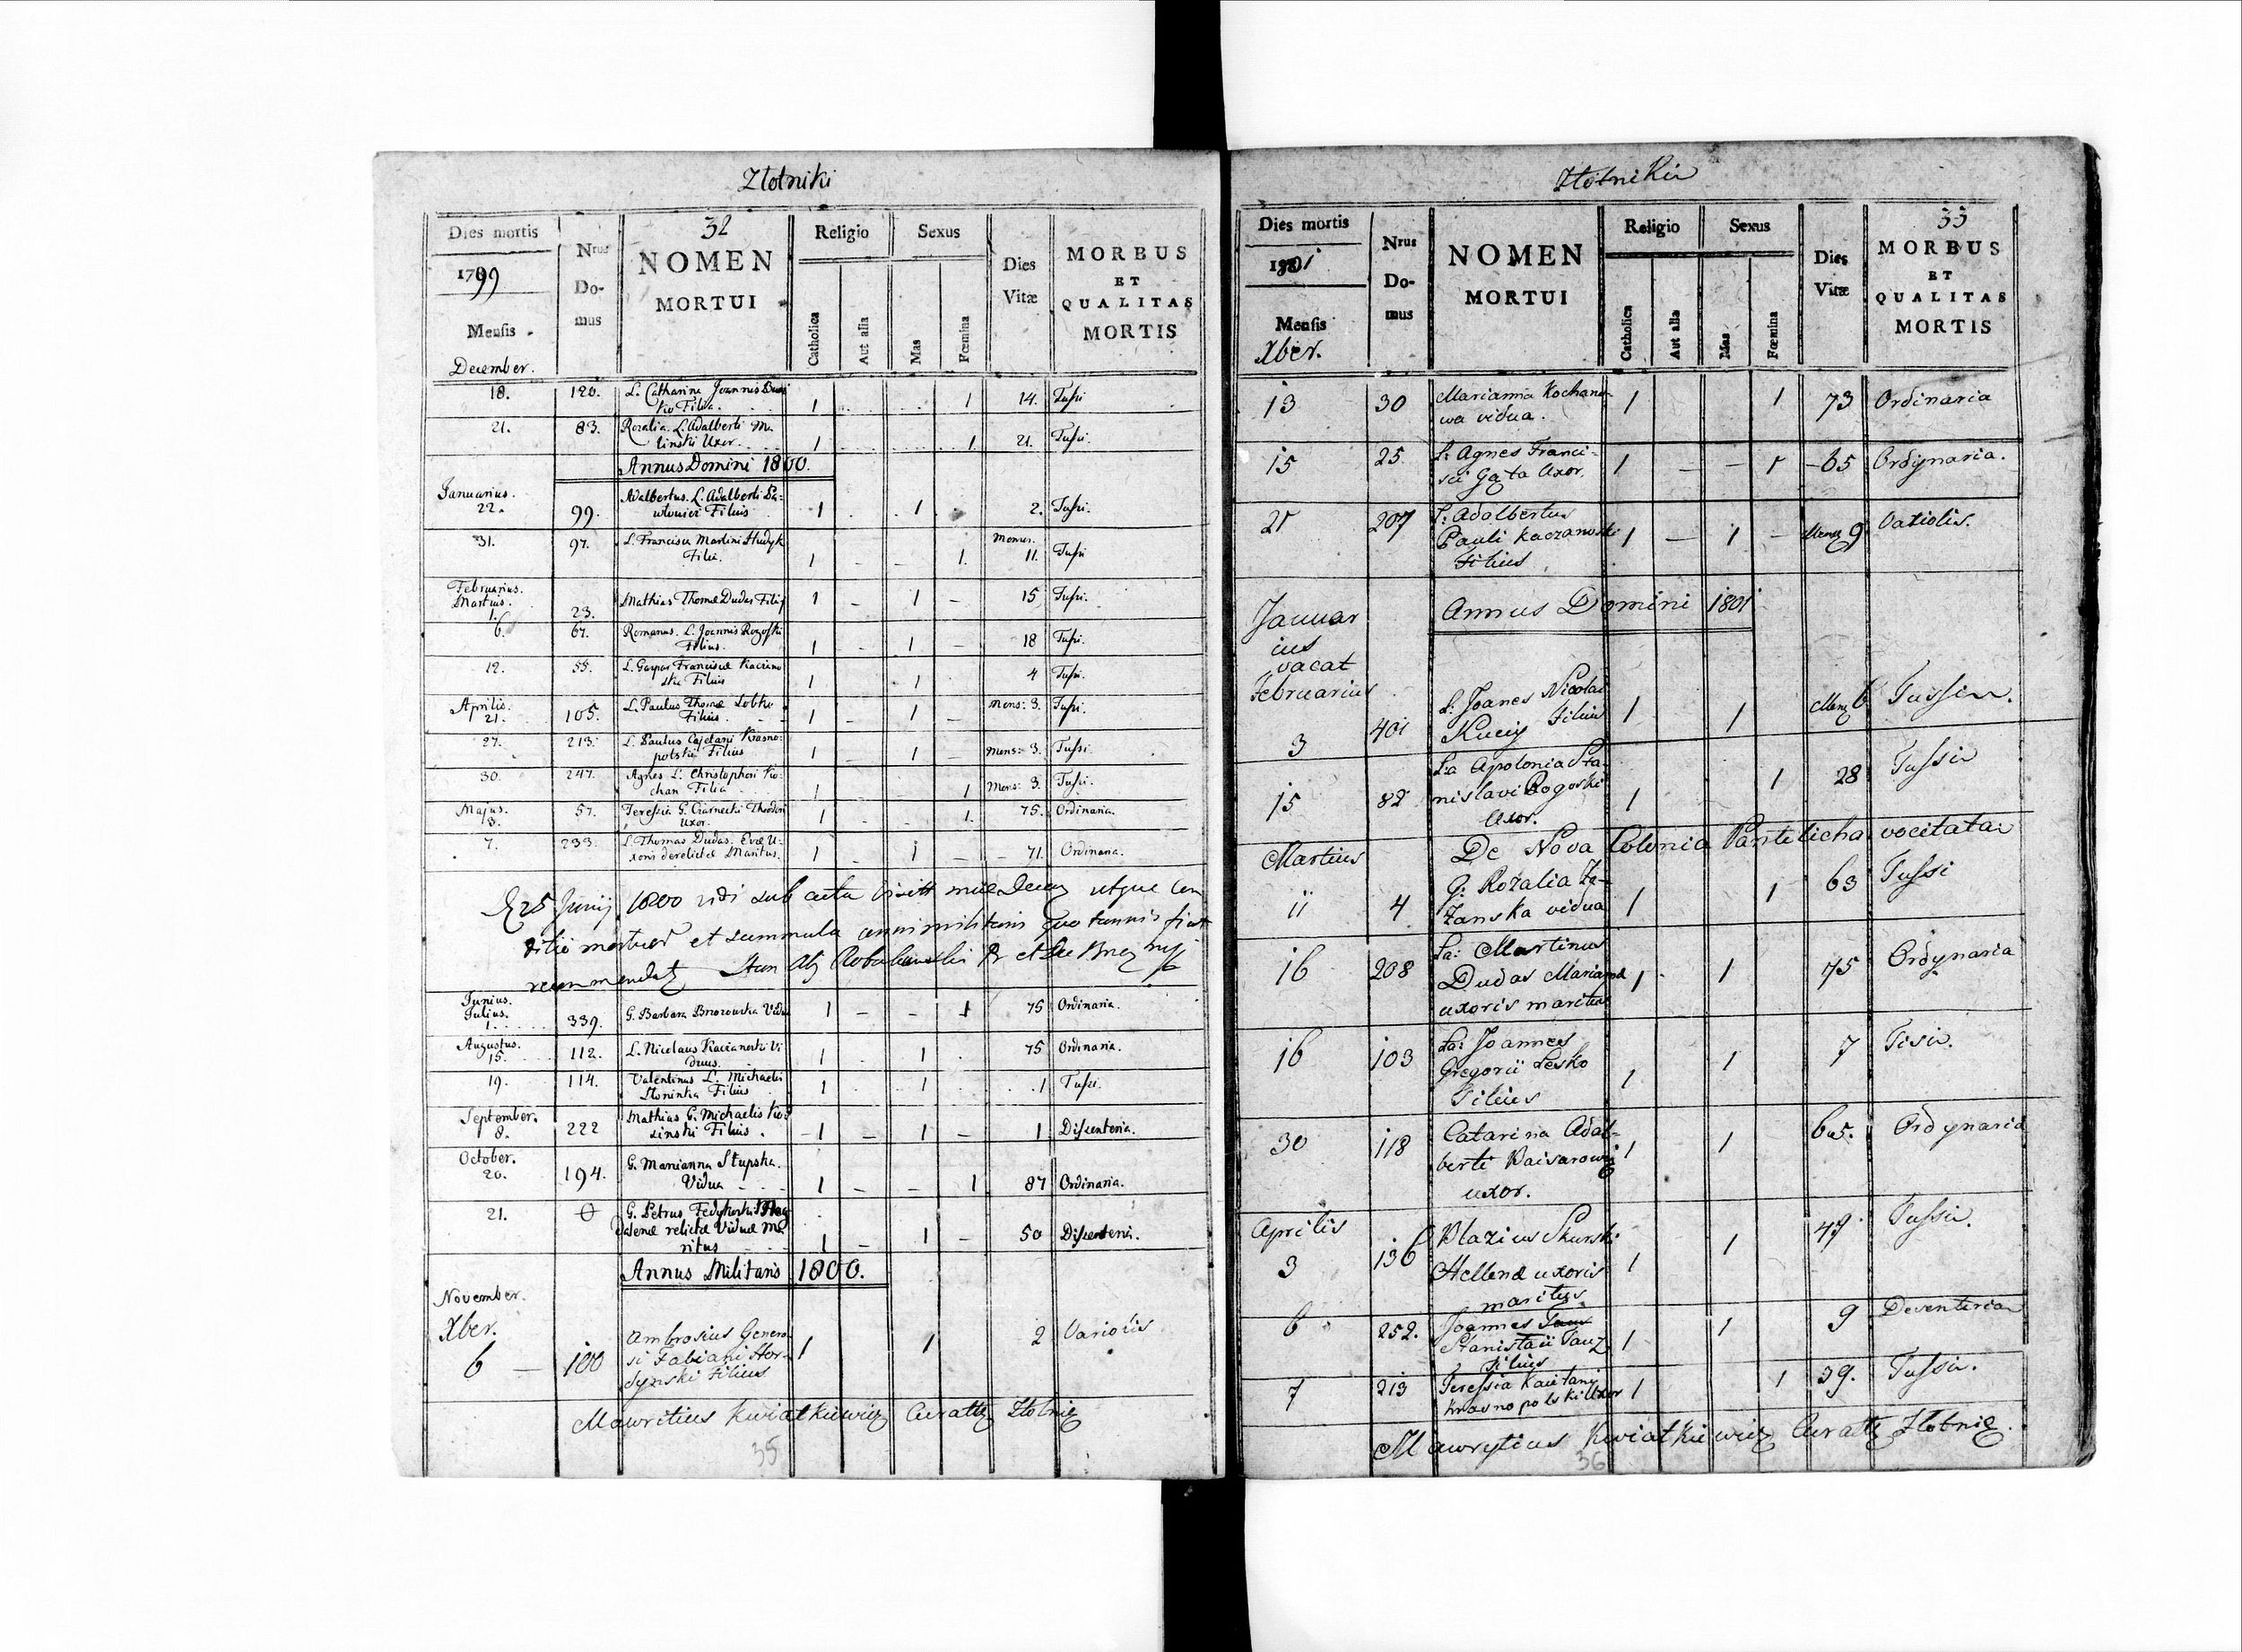 Złotniki
Dies mortis
1799
Mensis
December.
Nrus
Do-
mus
32
NOMEN
MORTUI
Religio
Catholica
Aut alia
Sexus
Mas
Fœmina
Dies
Vitæ
MORBUS
ET
QUALITAS
MORTIS
18. 120. L. Catharina Joannis
Filia. 1 1 14. Tussi
21. 83. Rozalia L. Adalberti Ma
linski Uxor. 1 1 21. Tussi.
Annus Domini 1800.
Januarius.
22. 99. Adalbertus. L. Adalberti Pa-
Filius 1 1 2. Tussi.
31. 97. L. Francisca Martini Hudyk
Filia. 1 1. Menses. 11. Tussi
Februarius.
Martius.
1. 23. Mathias Thomæ Dudas Filius 1 1 15 Tussi.
6. 67. Romanus. L. Joannis Rogoski
Filius. 1 1 18 Tussi.
12. 55. L. Gaspar Franciscæ
Filius 1 1 4 Tussi.
Aprilis.
21. 105. L. Paulus Thomæ
Filius. 1 1 Mens: 3. Tussi.
27. 213. L. Paulus Cajetani Krasno-
polski Filius 1 1 Mens: 3. Tussi.
30. 247. Agnes L. Christophori Ko-
chan Filia 1 1 Mens: 3. Tussi.
Majus.
3. 57. Teressia G. Czarnecki Theodori
Uxor. 1 1. 75. Ordinaria.
7. 233. L. Thomas Dudas. Evæ U-
xoris derelictæ Maritus. 1 1 71. Ordinaria.
25 Junij 1800 vidi sub actu
et summula anni militaris quotannis fiat
Junius.
Julius.
1. 339. G. Barbara Brzozowska Vidua 1 1 75 Ordinaria.
Augustus.
15. 112. L. Nicolaus Kaczanowski Vi
duus. 1 1 75 Ordinaria.
19. 114. Valentinus L. Michaelis
Słoninka Filius 1 1 1 Tussi.
September.
8. 222 Mathias G. Michaelis Ko-
zinski Filius. 1 1 1 Dissenteria.
October.
20. 194. G. Marianna Słupska.
Vidua 1 1 87 Ordinaria.
21. 0 G. Petrus Mag
dalenæ relictæ Viduæ Ma
ritus 1 1 50 Dissenteria.
Annus Militaris 1800.
November.
Xber.
6 100 Ambrosius Genero
si Fabiani Hor-
dynski Filius 1 1 2 Variolis
Mauritius Kwiatkiewicz Curatus Złotnic
35
Złotnikia
Dies mortis
1801
Mensis
Xber.
Nrus
Do-
mus
NOMEN
MORTUI
Religio
Catholica
Aut alia
Sexus
Mas
Fœmina
Dies
Vitæ
33
MORBUS
ET
QUALITAS
MORTIS
13 30 Marianna Kochano
wa vidua. 1 1 73 Ordinaria
15 25 L: Agnes Franci-
sci Gata Uxor. 1 1 65 Ordynaria.
21 207 L: Adalbertus
Pauli Kaczanoski
Filius 1 1 Mens 9 Variolis.
Annus Domini 1801
Januar
ius
vacat
Februarius
3 401 L: Joanes Nicolai
Kuciy Filius 1 1 Mens 6 Tussia.
15 82 L:a Apolonia Sta-
nislavi Rogoski
Uxor. 1 1 28 Tussia
Martius De Nova Colonia Pantelicha vocitata
11 4 G: Rozalia Za-
zanska vidua 1 1 63 Tussi
16 208 La: Martinus
Dudas Marianna
uxoris maritus 1 1 75 Ordynaria
16 103 La: Joannes
Gregorii Lesko
Filius 1 1 7 Tisia.
30 118 Catarina Adal-
berti
uxor. 1 1 65. Ordynaria
Aprilis
3 136 Blazius Skurski
Hellenæ uxoris
maritus 1 1 49 Tussia.
6 252. Joannes
Stanislaii Tauz
Filius 1 1 9 Desenteria
7 213 Teressia Kaietani
Krasnopolski Uxor 1 1 39. Tussia.
Maurytius Kwiatkiewicz Curatus Złotnic.
36